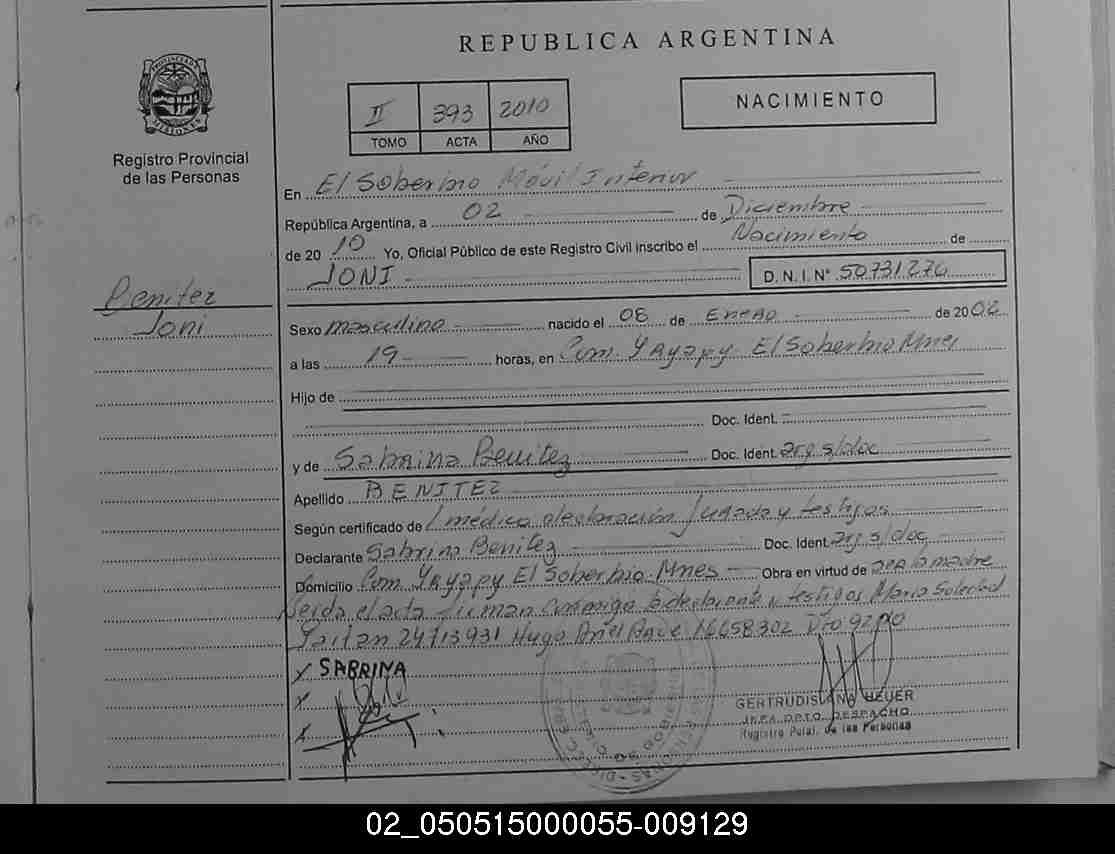 REPUBLICA ARGENTINA
PROVINCIA DE MISIONES
Registro Provincial
de las Personas
II 393 2010
TOMO ACTA AÑO
NACIMIENTO
En El Soberbio Móvil Interior
República Argentina, a 02 de Diciembre
de 2010 Yo, Oficial Público de este Registro Civil inscribo el Nacimiento de
JONI D.N.I. Nº 50731276
Benitez
Joni
Sexo masculino nacido el 08 de Enero de 2008
a las 19 horas, en Com. Yryapy El Soberbio Mnes
Hijo de
Doc. Ident.
y de Sabrina Benitez Doc. Ident. arg s/doc
Apellido BENITEZ
Según certificado de / médico declaración jurada y testigos
Declarante Sabrina Benitez Doc. Ident. arg s/doc
Domicilio Com. Yryapy El Soberbio Mnes Obra en virtud de ser la madre
Leida el acta firman conmigo la declarante y testigos Maria Soledad
24713931 Hugo Ariel 16658302
x SABRINA
x
x
GERTRUDIS ANA HEUER
JEFA DPTO. DESPACHO
Registro Pcial. de las Personas
02_050515000055-009129